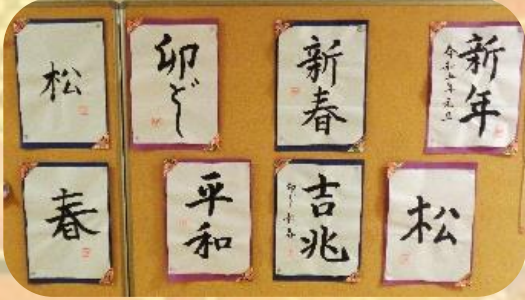 松
卯どし
新春
新年
令和五年元旦
春
平和
吉兆
松